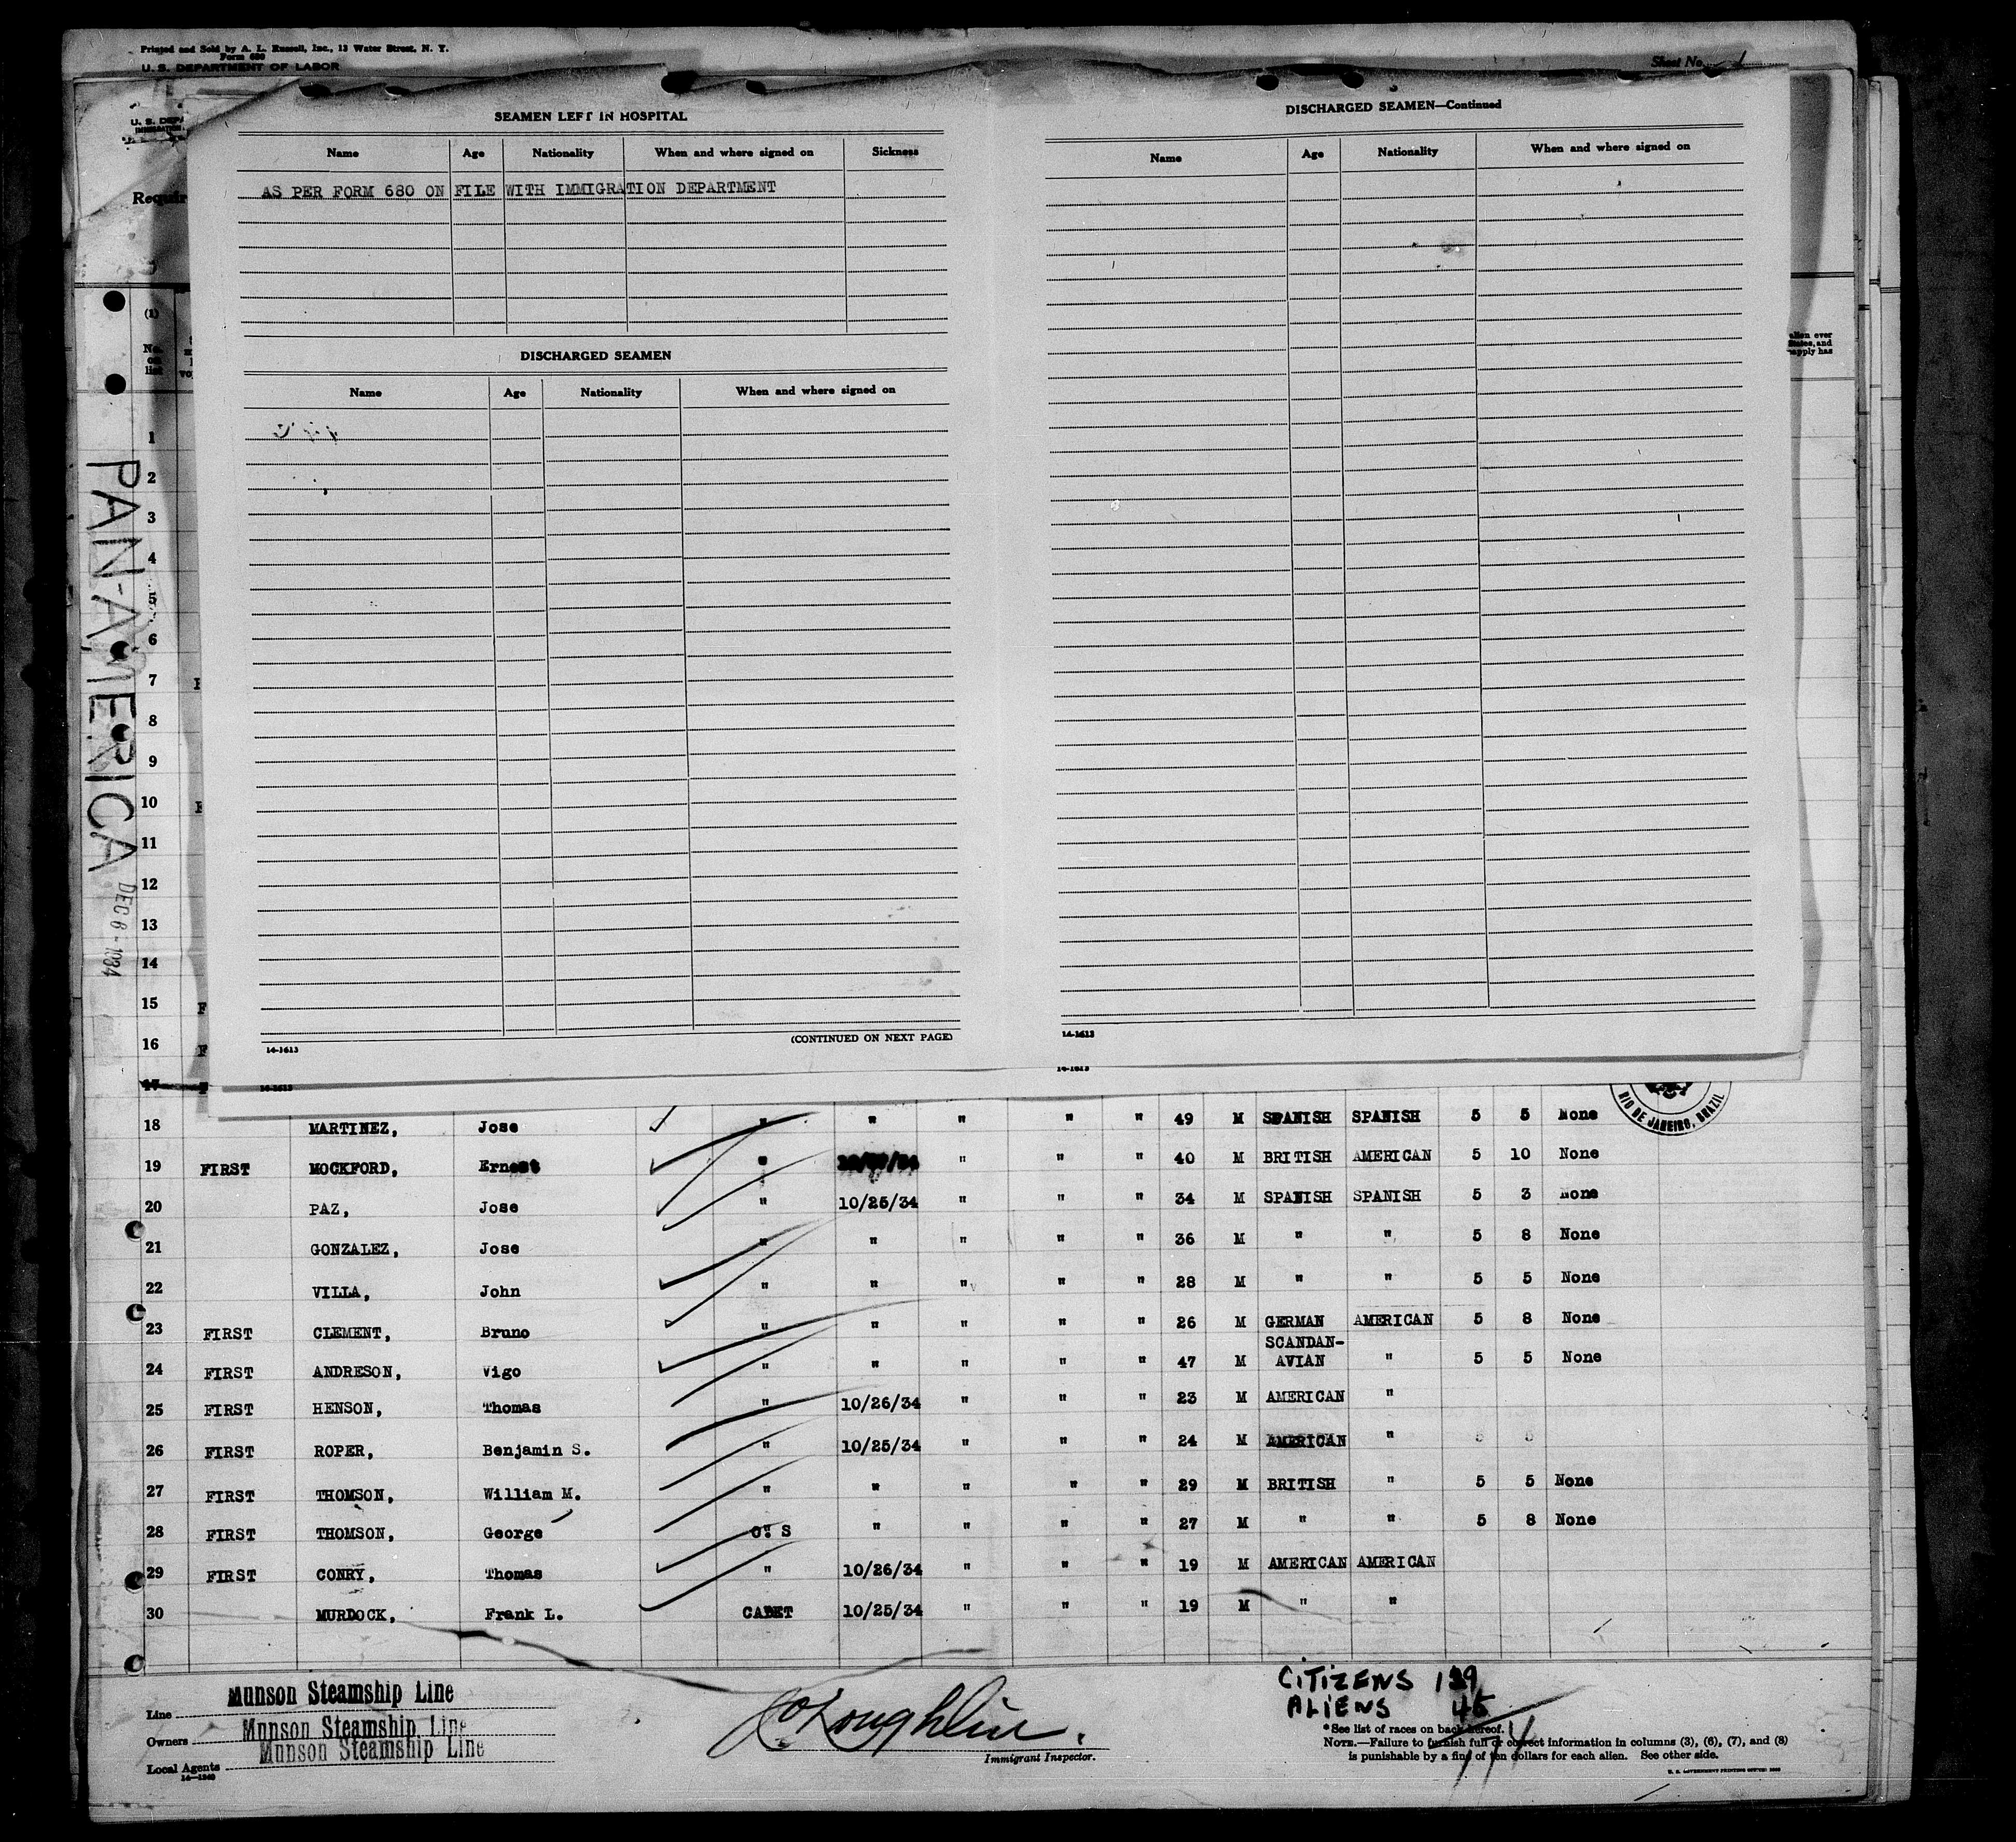 Printed and Sold by A. L. Russell, Inc., 13 Water Street, N. Y.
Form 680
U. S. DEPARTMENT OF LABOR
Sheet No. 1
SEAMEN LEFT IN HOSPITAL
Name Age Nationality When and where signed on Sickness
AS PER FORM 680 ON FILE WITH IMMIGRATION DEPARTMENT
DISCHARGED SEAMEN
Name Age Nationality When and where signed on
(CONTINUED ON NEXT PAGE)
14-1613
DISCHARGED SEAMEN—Continued
Name Age Nationality When and where signed on
14-1613
14-1613
14-1613
U. S. DEPA
IMMIGRATION
Requir
(1)
No. on list
alien ever
States, and
apply has
PAN-AMERICA
DEC 6 - 1934
1
2
3
4
5
6
7
8
9
10
11
12
13
14
15 F
16 F
17 F
RIO DE JANEIRO, BRAZIL
18 MARTINEZ, Jose " " " " " 49 M SPANISH SPANISH 5 5 None
19 FIRST MOCKFORD, Ernest " " " " 40 M BRITISH AMERICAN 5 10 None
20 PAZ, Jose " 10/25/34 " " " 34 M SPANISH SPANISH 5 3 None
21 GONZALEZ, Jose " " " " " 36 M " " 5 8 None
22 VILLA, John " " " " " 28 M " " 5 5 None
23 FIRST CLEMENT, Bruno " " " " " 26 M GERMAN AMERICAN 5 8 None
24 FIRST ANDRESON, Vigo " " " " " 47 M SCANDAN-AVIAN " 5 5 None
25 FIRST HENSON, Thomas " 10/26/34 " " " 23 M AMERICAN "
26 FIRST ROPER, Benjamin S. " 10/25/34 " " " 24 M AMERICAN " 5 5
27 FIRST THOMSON, William M. " " " " " 29 M BRITISH " 5 5 None
28 FIRST THOMSON, George O. S " " " " 27 M " " 5 8 None
29 FIRST CONRY, Thomas " 10/26/34 " " " 19 M AMERICAN AMERICAN
30 MURDOCK, Frank L. CADET 10/25/34 " " " 19 M " "
Line Munson Steamship Line
Owners Munson Steamship Line
Local Agents Munson Steamship Line
14-1240
Immigrant Inspector.
CITIZENS 139
ALIENS 45
*See list of races on back hereof.
NOTE.—Failure to furnish full or correct information in columns (3), (6), (7), and (8)
is punishable by a fine of ten dollars for each alien. See other side.
U. S. GOVERNMENT PRINTING OFFICE